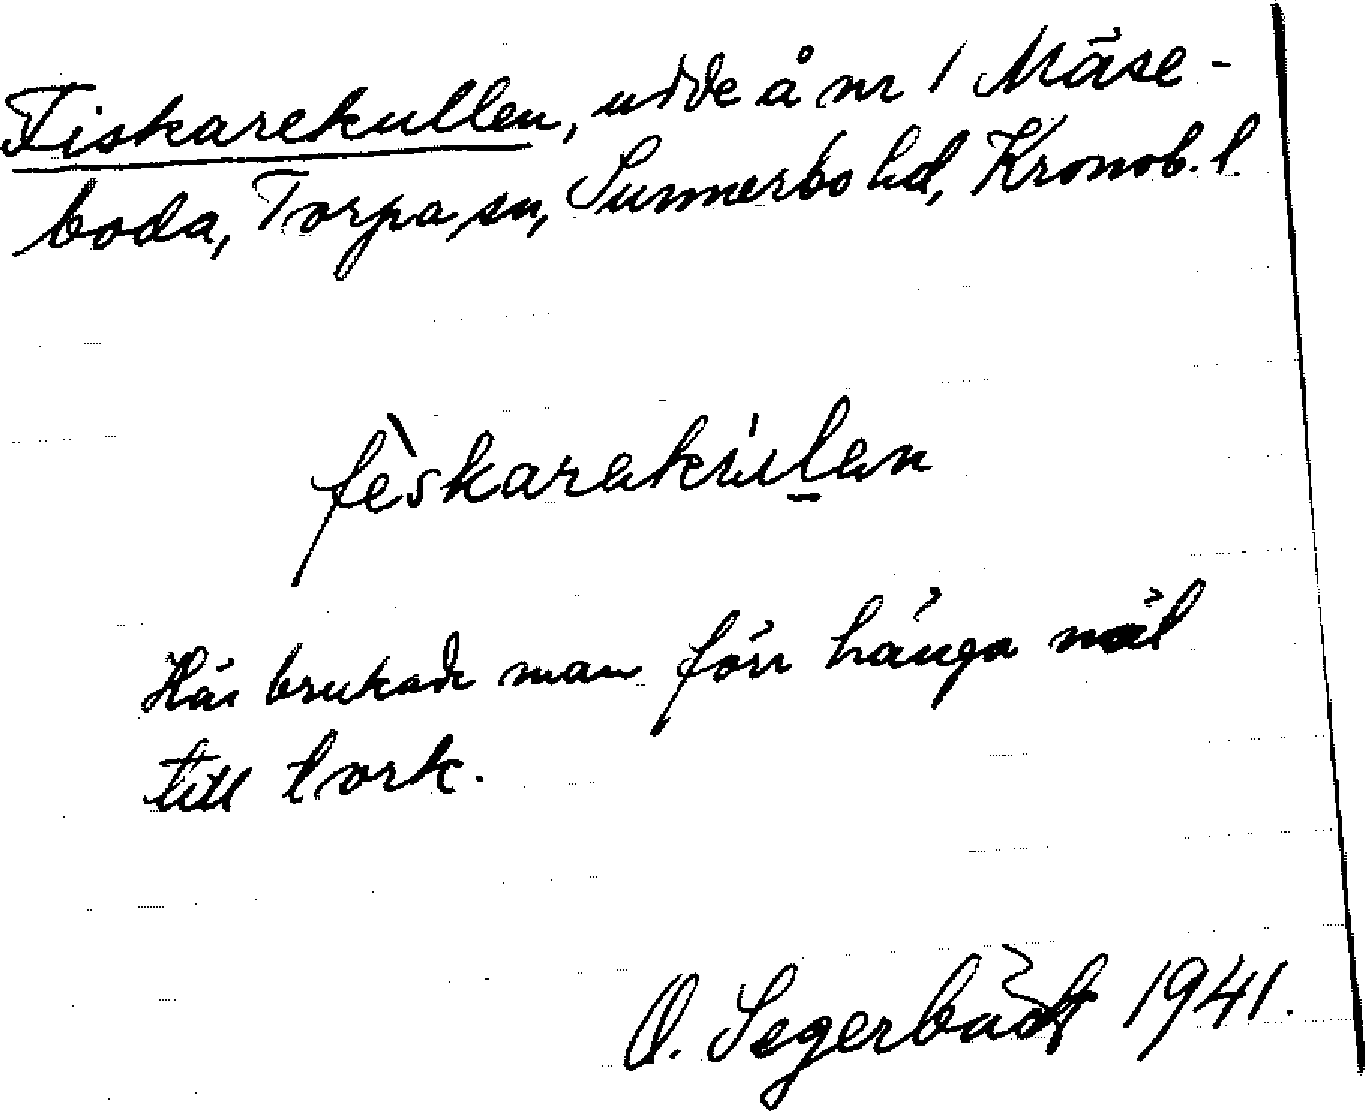 Fiskarekullen, udde å nr 1 Mäse-
boda, Torpa sn, Sunnerbo hd, Kronob. l.
fèskarakúlan
Här brukade man förr hänga nät
till tork.
O. Segerbäck 1941.